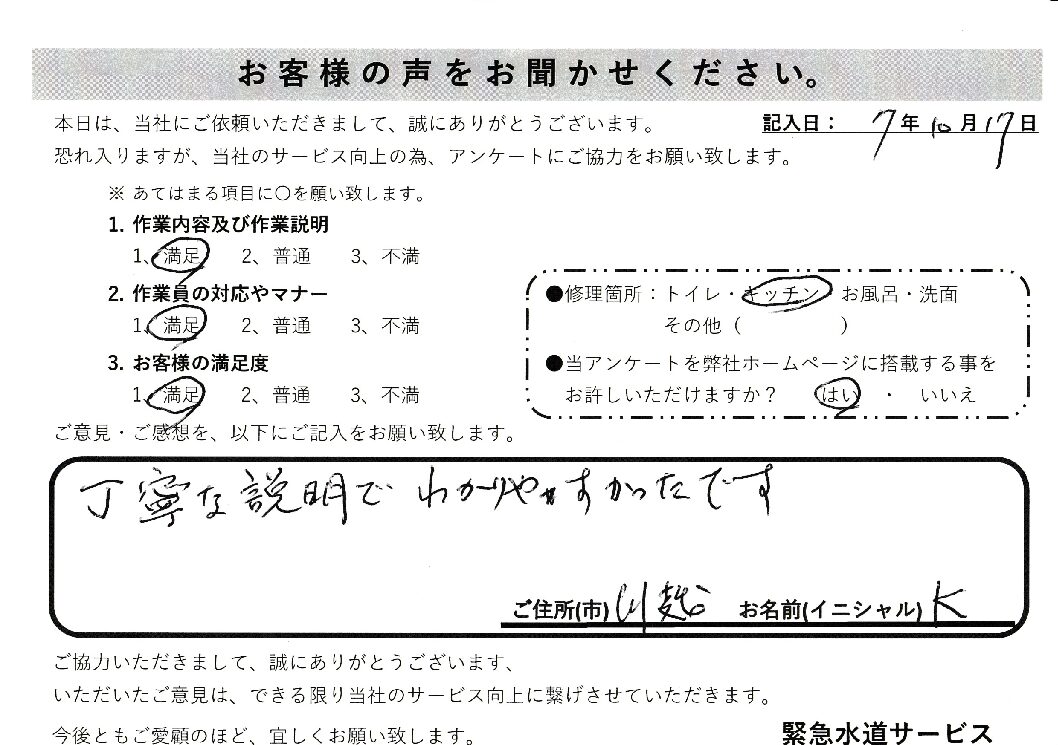 お客様の声をお聞かせください。
本日は、当社にご依頼いただきまして、誠にありがとうございます。
記入日： 7年10月17日
恐れ入りますが、当社のサービス向上の為、アンケートにご協力をお願い致します。
※ あてはまる項目に〇を願い致します。
1. 作業内容及び作業説明
1、満足　2、普通　3、不満
2. 作業員の対応やマナー
1、満足　2、普通　3、不満
3. お客様の満足度
1、満足　2、普通　3、不満
●修理箇所：トイレ・キッチン　お風呂・洗面
その他（　　　　　）
●当アンケートを弊社ホームページに搭載する事を
お許しいただけますか？　はい　・　いいえ
ご意見・ご感想を、以下にご記入をお願い致します。
丁寧な説明で わかりやすかったです
ご住所(市) 川越　お名前(イニシャル) K
ご協力いただきまして、誠にありがとうございます、
いただいたご意見は、できる限り当社のサービス向上に繋げさせていただきます。
今後ともご愛顧のほど、宜しくお願い致します。
緊急水道サービス